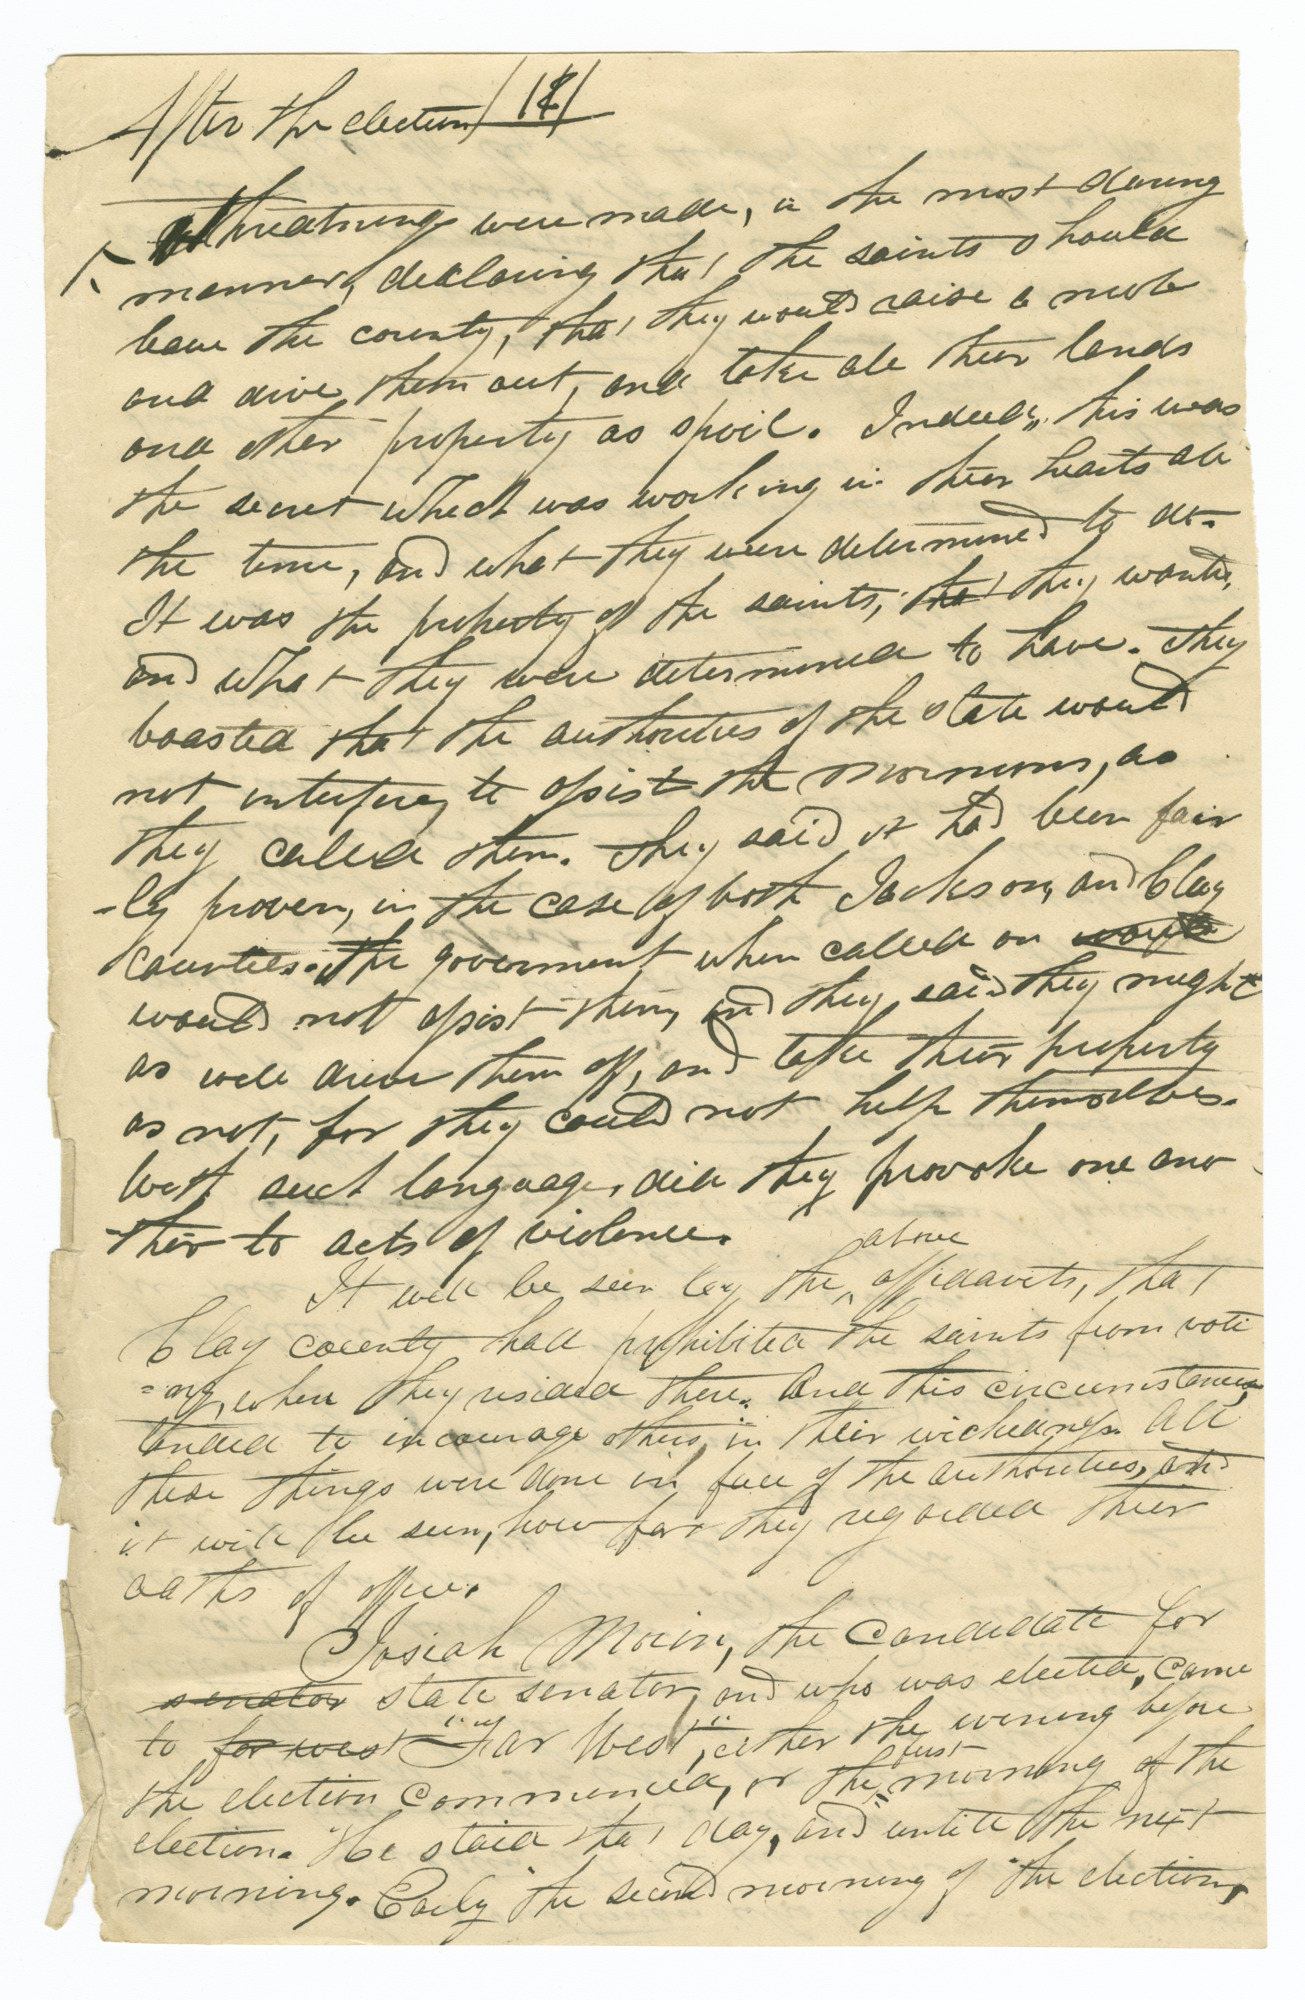 After the election / 14 /
threatnings were made, in the most daring
manner, declaring that the saints should
leave the county, that they would raise a mob
and drive them out, and take all their lands
and other property as spoil. Indeed, this was
the secret which was working in their hearts all
the time, and what they were determined to do.
It was the property of the saints, that they wanted,
and what they were determined to have. They
boasted that the authorities of the state would
not interfere, to assist the Mormons, as
they called them. They said it had been fair
-ly proven, in the case of both Jackson, and Clay
counties. The goverment when called on would
would not assist them, and they said they might
as well drive them off, and take their property
as not, for they could not help themselves.
With such language, did they provoke one ano
ther to acts of violence.
It will be seen by the above affidavits, that
Clay county had prohibited the saints from voti
=ng, when they resided there. And this circumstance,
tended to incourage others, in their wickedness. All
these things were done in face of the authorities, and
it will be seen, how far they regarded their
oaths of office.
Josiah Morin, the candidate for
senator state senator, and who was elected, came
to far west "Far West", either the evening before
the election commenced, or the first morning of the
election. He staid that day, and untill the next
morning. Early the second morning of the election,